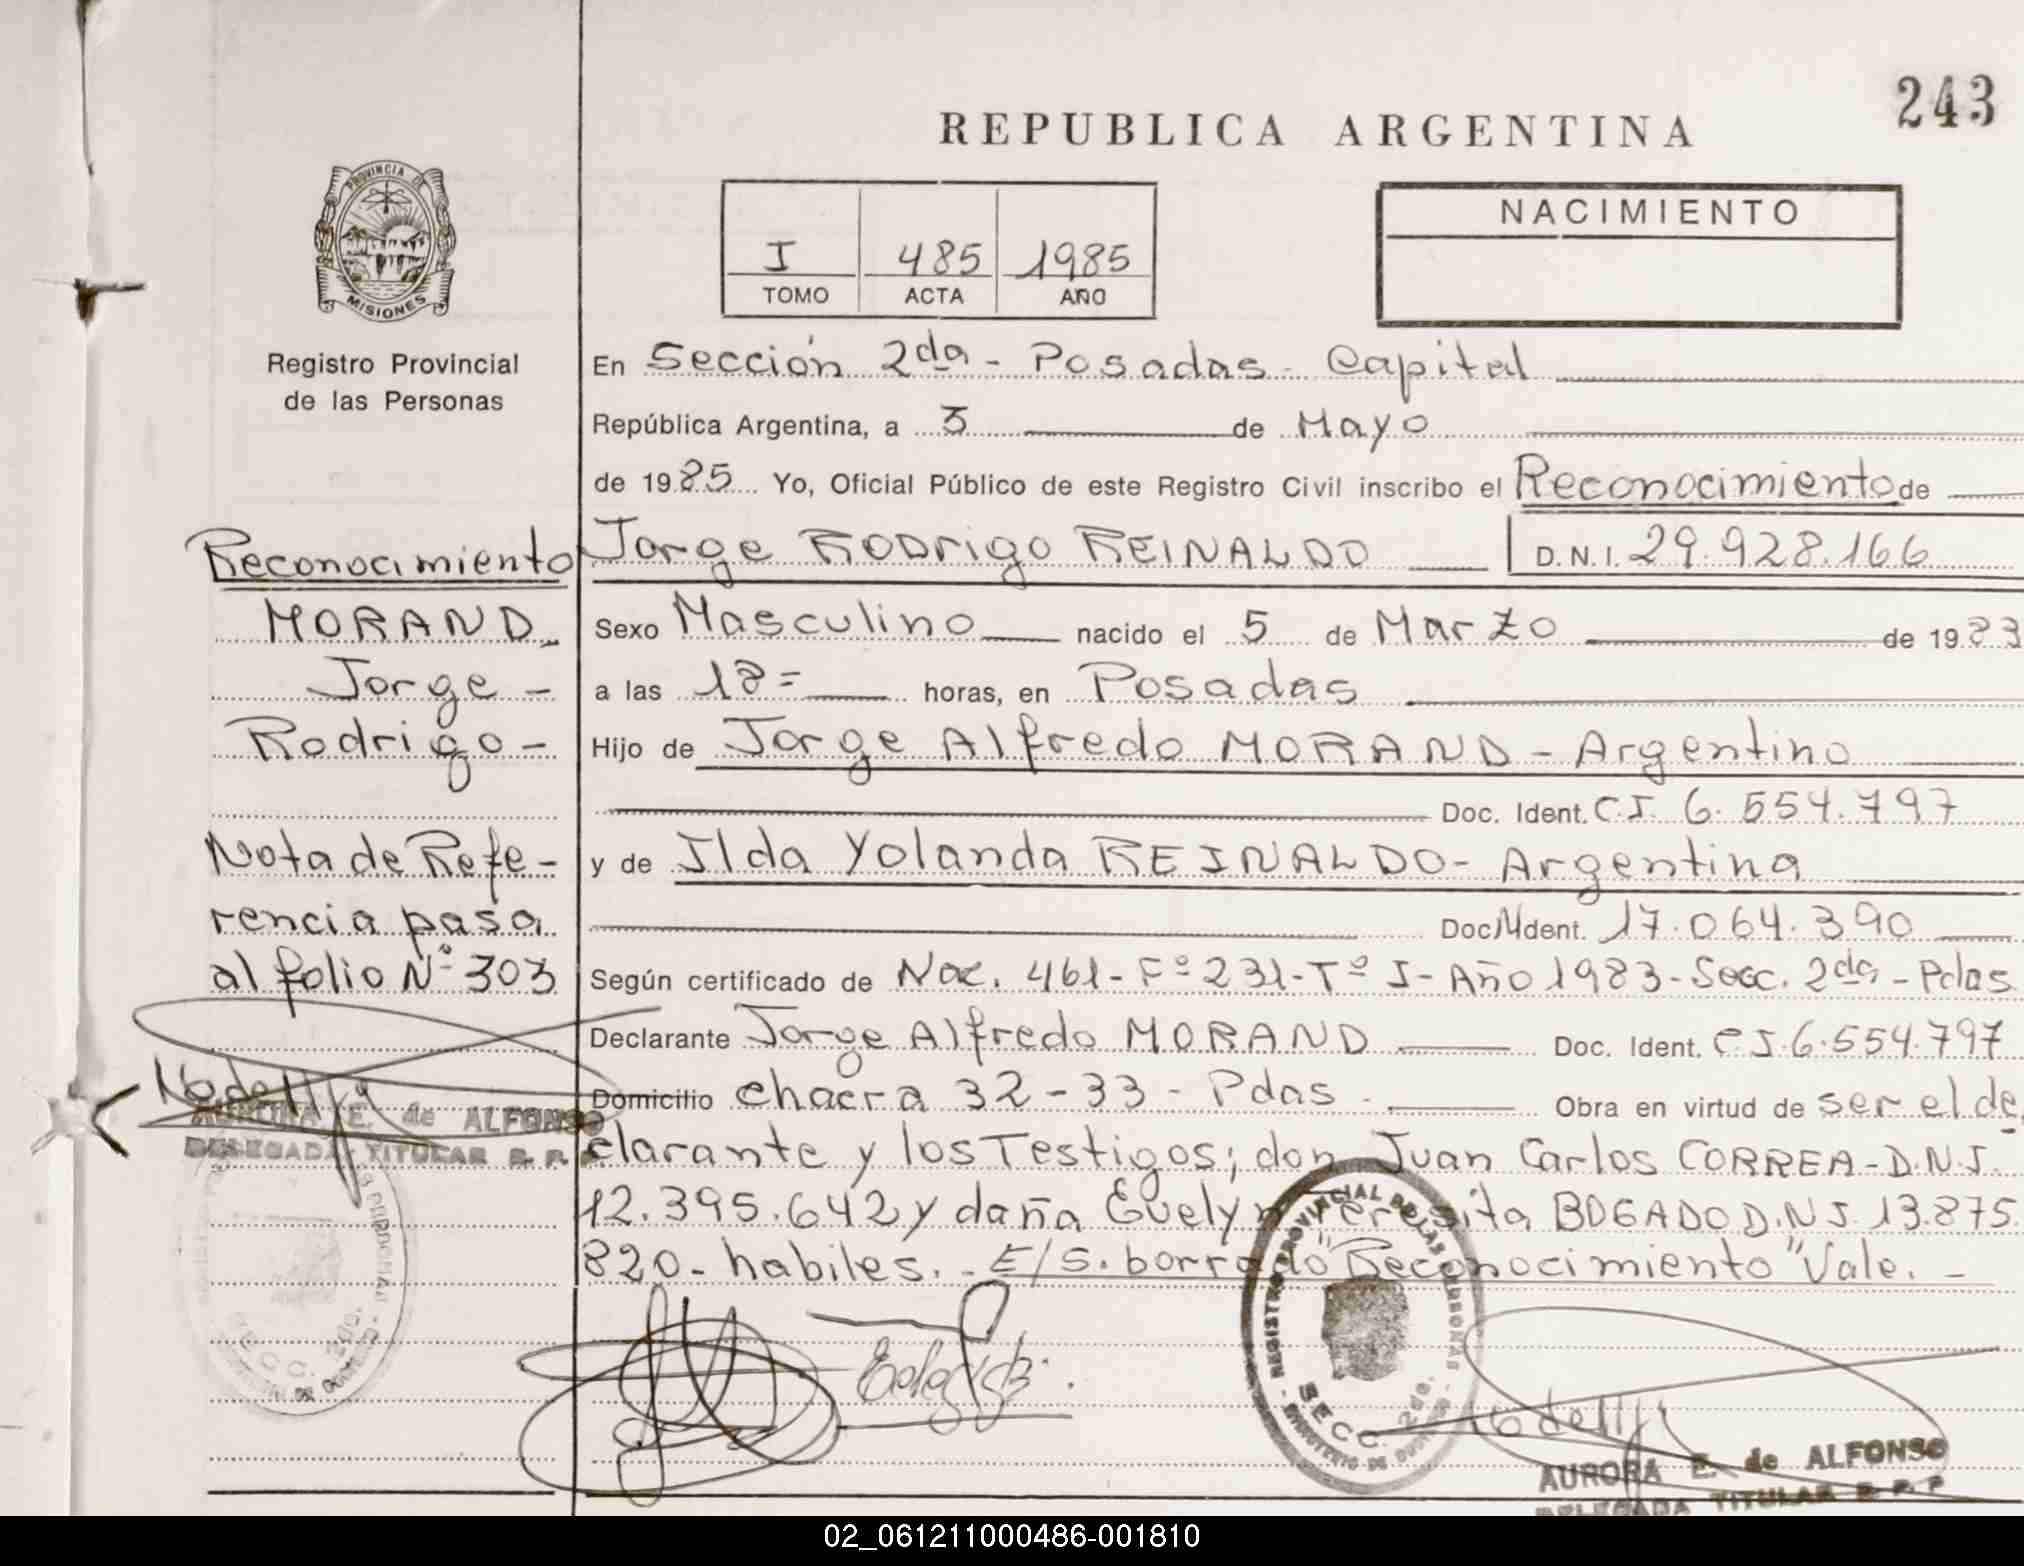 243
REPUBLICA ARGENTINA
PROVINCIA DE
MISIONES
NACIMIENTO
I 485 1985
TOMO ACTA AÑO
Registro Provincial
de las Personas
En Sección 2da - Posadas - Capital
República Argentina, a 3 de Mayo
de 1985 Yo, Oficial Público de este Registro Civil inscribo el Reconocimiento de
Jorge RODrigo REINALDO D.N.I. 29.928.166
Sexo Masculino nacido el 5 de Marzo de 1983
a las 18= horas, en Posadas
Hijo de Jorge Alfredo MORAND - Argentino
Doc. Ident. C.I. 6.554.797
y de Ilda Yolanda REINALDO - Argentina
Doc. Ident. 17.064.390
Según certificado de Nac. 461 - Fº 231 - Tº I - Año 1983 - Secc. 2da - Pdas
Declarante Jorge Alfredo MORAND Doc. Ident. C.I. 6.554.797
Domicilio chacra 32-33 - Pdas - Obra en virtud de ser el de
clarante y los Testigos; don Juan Carlos CORREA - D.N.I.
12.395.642 y doña Evelyn Teresita BOGADO D.N.I. 13.875.
820 - habiles. - E/S. borrado "Reconocimiento" Vale. -
Reconocimiento
MORAND -
Jorge -
Rodrigo -
Nota de Refe-
rencia pasa
al folio Nº 303
AURORA E. de ALFONSO
DELEGADA TITULAR R. P.
REGISTRO PROVINCIAL DE LAS PERSONAS
SECC. 2da.
AURORA E. de ALFONSO
DELEGADA TITULAR R. P. P
02_061211000486-001810